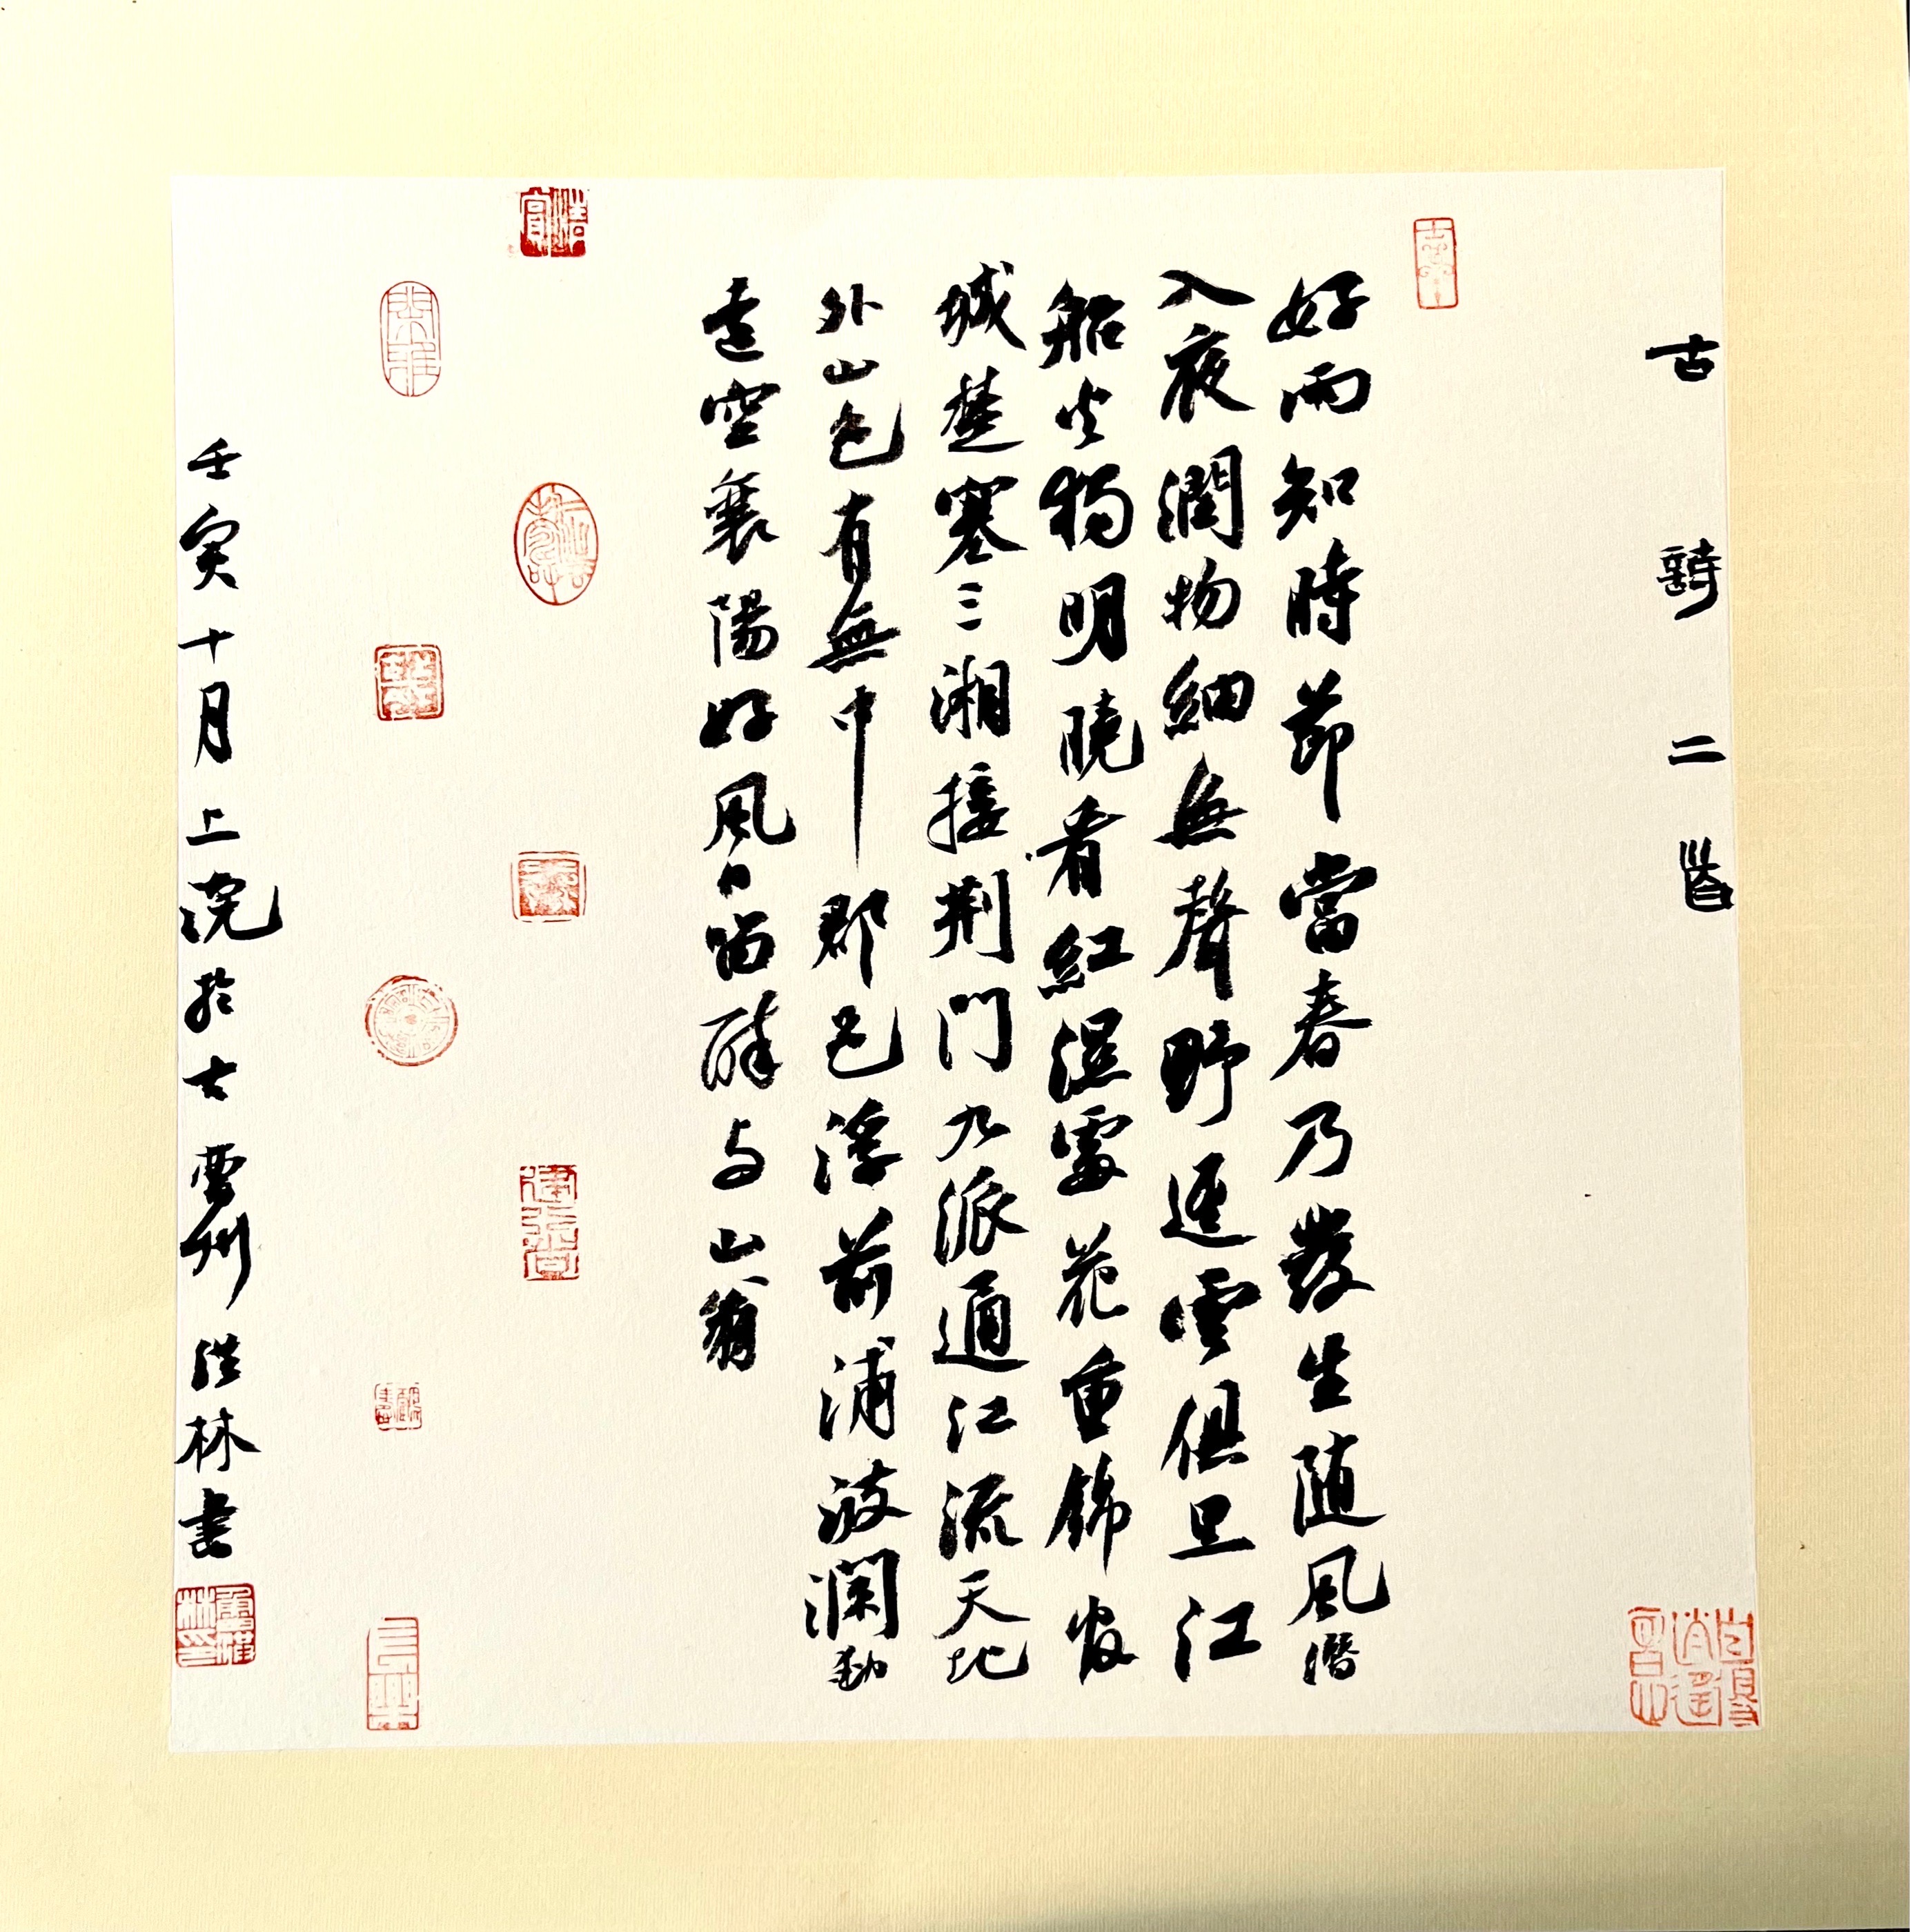 古詩二首
好雨知時節當春乃發生随風潛
入夜潤物細無聲野逕雲俱黑江
船火獨明曉看紅湿處花重錦官
城楚塞三湘接荆門九派通江流天地
外山色有無中郡邑浮前浦波澜動
遠空襄陽好風日留醉与山翁
壬寅十月上浣於古州林書